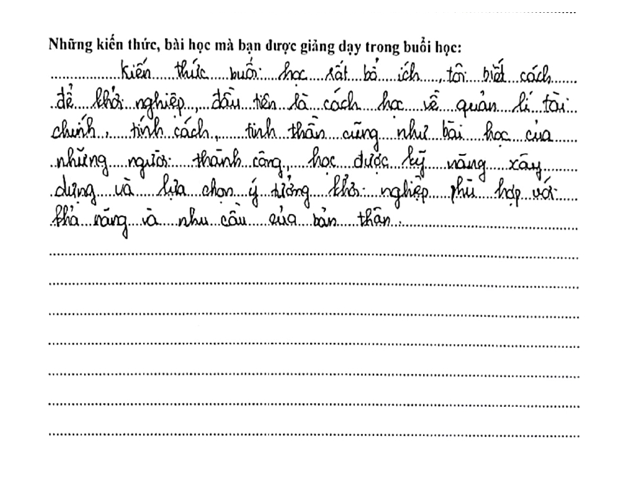 Những kiến thức, bài học mà bạn được giảng dạy trong buổi học:
Kiến thức buổi học rất bổ ích, tôi biết cách
để khởi nghiệp, đầu tiên là cách học về quản lí tài
chính, tính cách, tinh thần cũng như bài học của
những người thành công, học được kỹ năng xây
dựng và lựa chọn ý tưởng khởi nghiệp phù hợp với
khả năng và nhu cầu của bản thân.